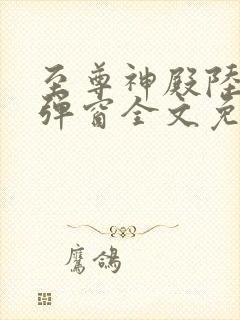 至尊神殿陸
弹窗全文免
鷹鴿